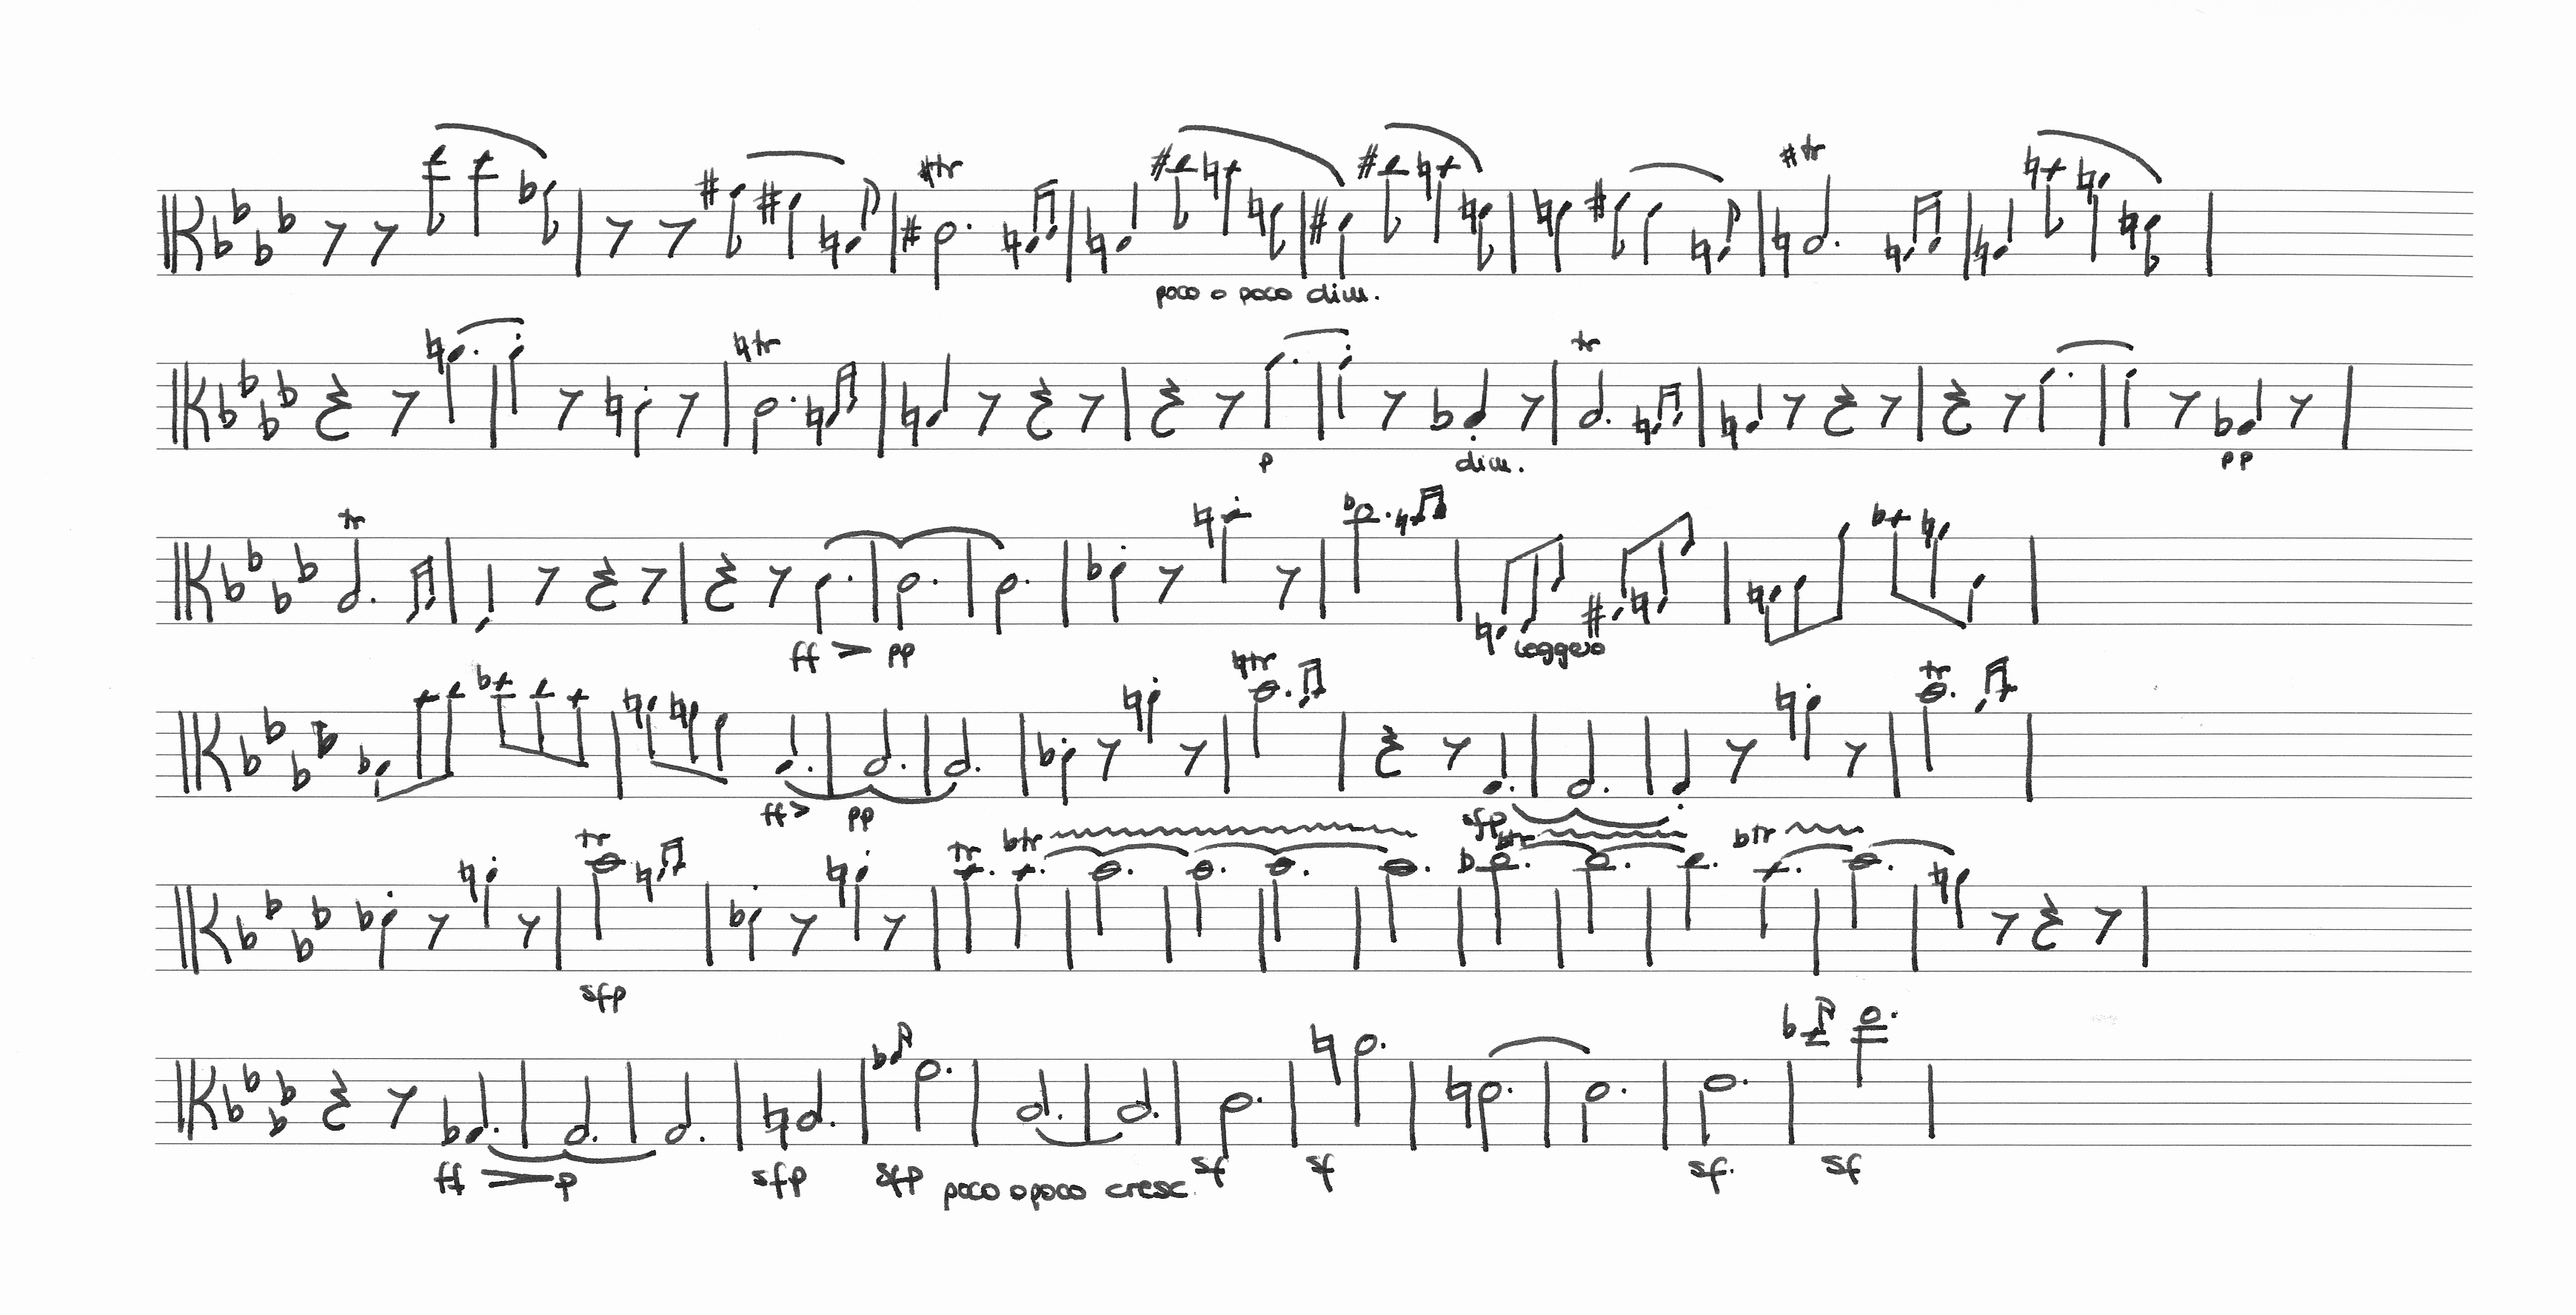 tr
poco o poco dim.
tr
tr
tr
p
dim.
pp
tr
ff
pp
leggero
tr
tr
ff
pp
sfp
tr
tr
tr
tr
tr
sfp
ff
p
sfp
sfp
poco o poco cresc.
sf
sf
sf.
sf